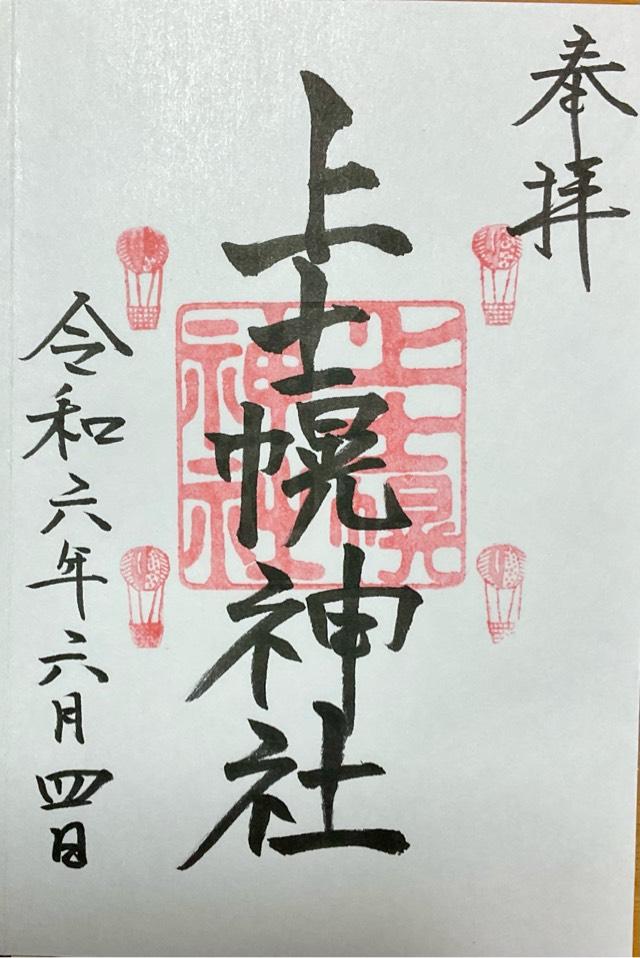 奉拝
上士幌神社
上士幌
神社
令和六年六月四日